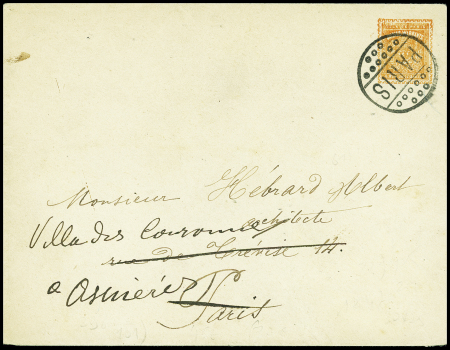 PARIS
Monsieur Hébrard Albert
Villa des Couronnes
architecte
rue de Trévise 14.
a Asnières
Paris